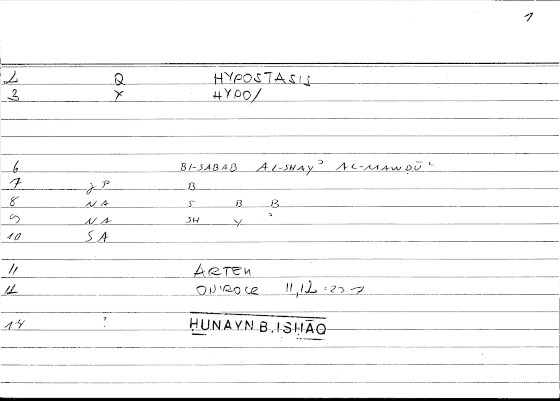 1
2 Q HYPOSTASIS
3 X HYPO/
6 BI-SABAB AL-SHAYʾ AL-MAWḌŪʿ
7 JP B
8 NA S B B
9 NA SH Y ʾ
10 SA
11 ARTEM
12 ONIROCR 11,12
14 ? ḤUNAYN B. ISḤĀQ